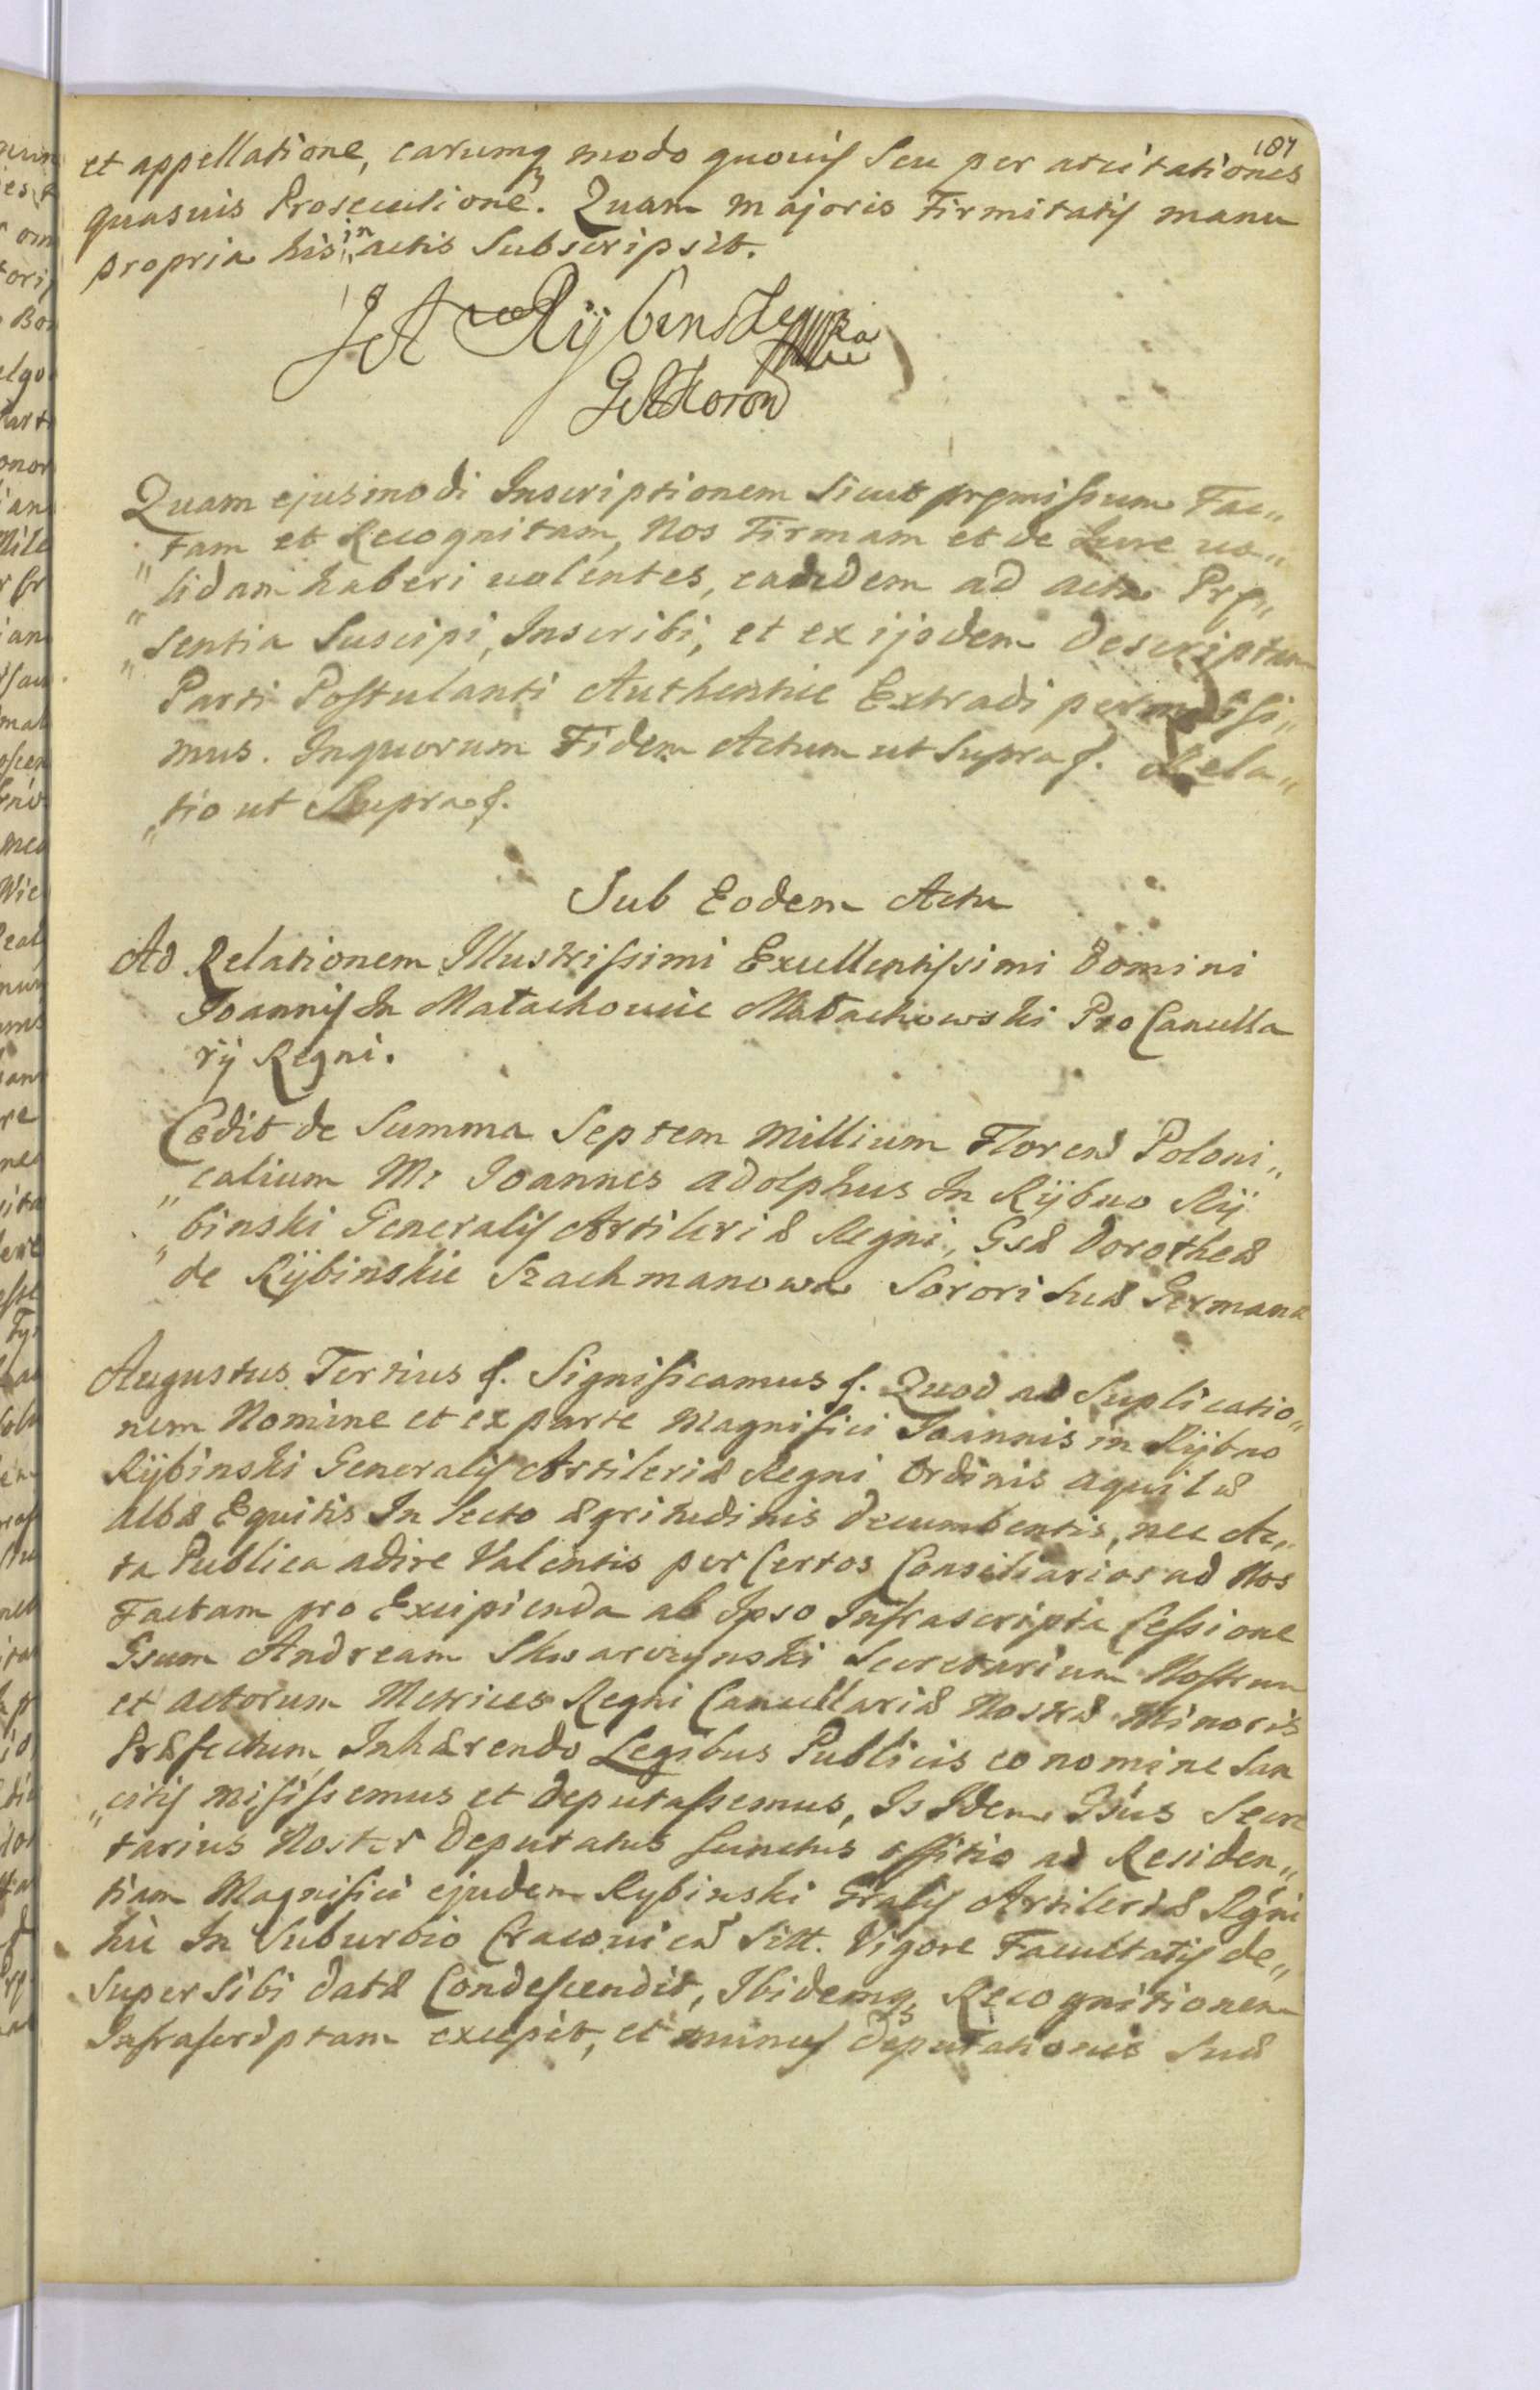 187
et appellatione, earumq₃ modo quovis seu per arcitationes
quasuis Prosecutione. Quam majoris Firmitatis manu
propria his in actis Subscripsit.
Rÿbinski
Quam ejusmodi Inscriptionem sicut pręmissum Fac„
„tam et Recognitam, Nos Firmam et de Iure va„
„lidam haberi volentes, eandem ad acta Pręˮ
„sentia Suscipi, Inscribi, et ex ijsdem Descriptum
Parti Postulanti Authentice Extradi permissi„
mus. In quorum Fidem Actum ut supra ſ. Rela„
„tio ut Supra ſ.
Sub Eodem Actu
Ad Relationem Illustrissimi Excellentissimi Domini
Joannis In Małachowice Małachowski Pro Cancella
rij Regni.
Cedit de Summa Septem Millium Floren Poloni„
„calium Mr Joannes Adolphus In Rÿbno Rÿ
„binski Generalis Artileriæ Regni, Gsæ Dorotheæ
de Rÿbinskie Szachmanowa Sorori suæ Germanæ
Augustus Tertius ſ. Significamus ſ. Quod ad Suplicatio„
nem Nomine et ex parte Magnifici Joannis in Rÿbno
Rÿbinski Generalis Artileriæ Regni Ordinis Aquilæ
Albæ Equitis In lecto ægritudinis decumbentis, nec Ac„
ta Publica adire Valentis per Certos Consiliarios ad Nos
Factam pro Excipienda ab Ipso Infrascripta Cessione
Gsum Andream Skwarczynski Secretarium Nostrum
et Actorum Metrices Regni Cancellariæ Nostræ Minoris
Præfectum, Inhærendo Legibus Publicis eo nomine San
„citis misissemus et deputassemus, Is Idem Gsus Secre
tarius Noster Deputatus functus offitio ad Residen„
tiam Magnifici ejudem Rybinski Gralis Artileriæ Rgni
hic In Suburbio Cracovien Sitt. Vigore Facultatis de„
super sibi datæ Condescendit, Ibidemq₃ Recognitionem
Infrascriptam excepit, et munus Deputationis suæ